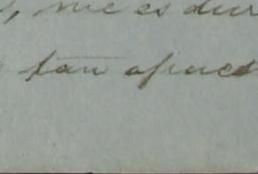 , me es dur
tan apues